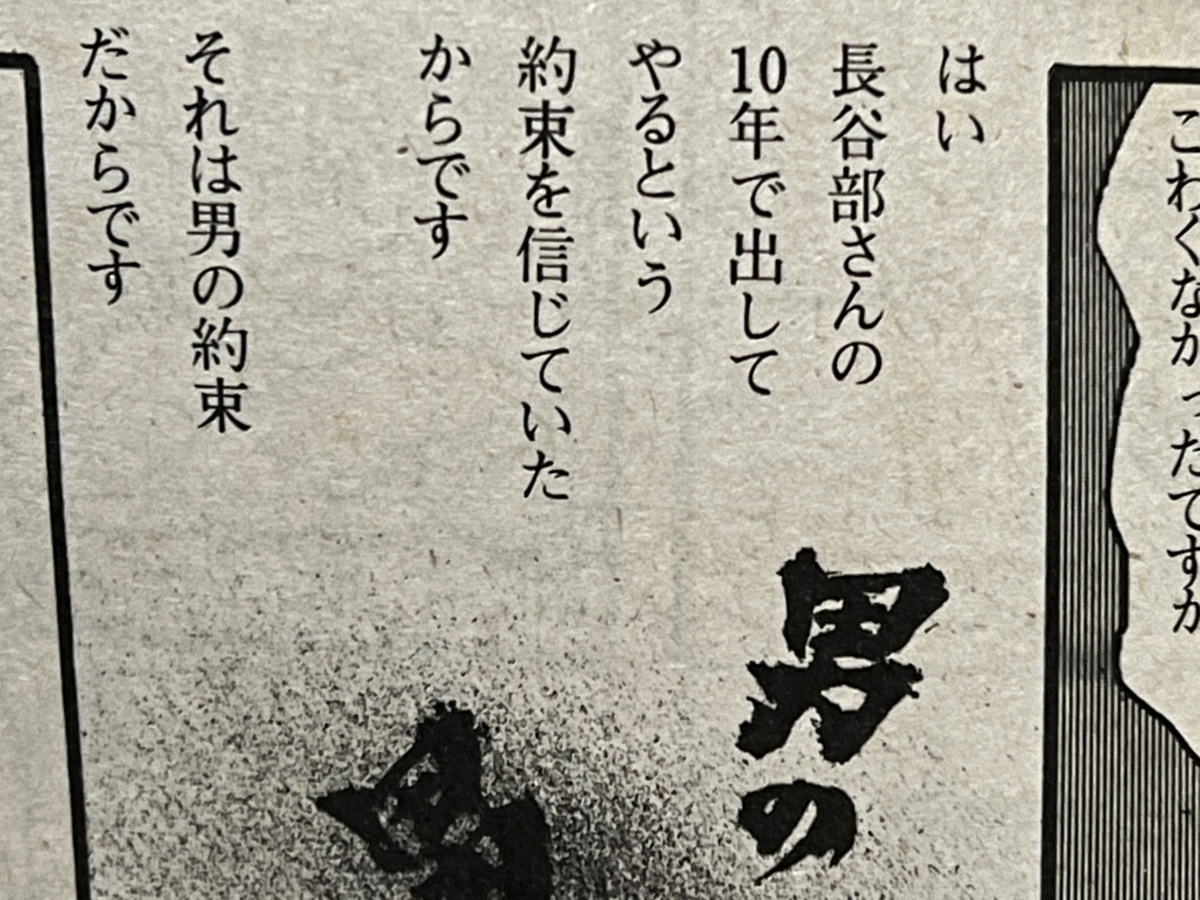 こわくなかったですか
はい
長谷部さんの
10年で出して
やるという
約束を信じていた
からです
それは男の約束
だからです
男の